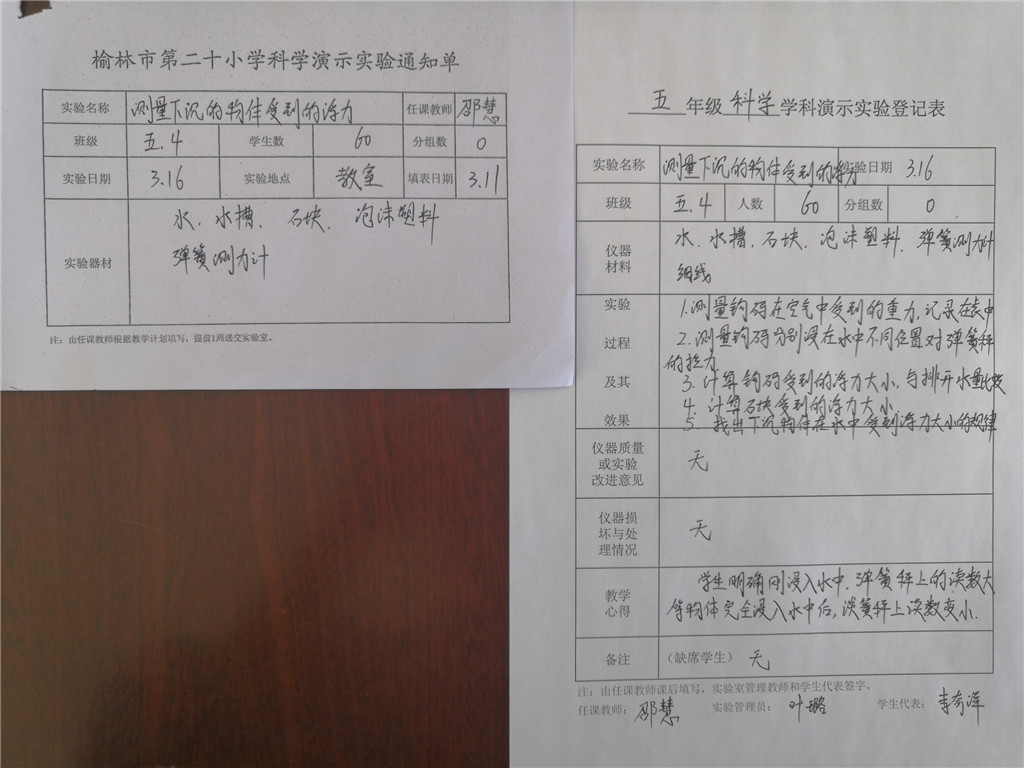 榆林市第二十小学科学演示实验通知单
实验名称 测量下沉的物体受到的浮力 任课教师 邵慧
班级 五.4 学生数 60 分组数 0
实验日期 3.16 实验地点 教室 填表日期 3.11
水、水槽、石块、泡沫塑料
实验器材 弹簧测力计
注：由任课教师根据教学计划填写，提前1周送交实验室。
五 年级 科学 学科演示实验登记表
实验名称 测量下沉的物体受到的浮力 实验日期 3.16
班级 五.4 人数 60 分组数 0.
仪器 水、水槽、石块、泡沫塑料、弹簧测力计
材料 细线
实验 1.测量钩码在空气中受到的重力,记录在表中
过程 2.测量钩码分别浸在水中不同位置对弹簧秤
的拉力
及其 3.计算钩码受到的浮力大小,与排开水量比较
4.计算石块受到的浮力大小
效果 5.找出下沉物体在水中受到浮力大小的规律
仪器质量
或实验 无
改进意见
仪器损
坏与处 无
理情况
教学 学生明确刚浸入水中,弹簧秤上的读数大
心得 等物体完全浸入水中后,弹簧秤上读数变小.
备注 （缺席学生） 无
注：由任课教师课后填写，实验室管理教师和学生代表签字。
任课教师： 邵慧 实验管理员： 叶璐 学生代表：